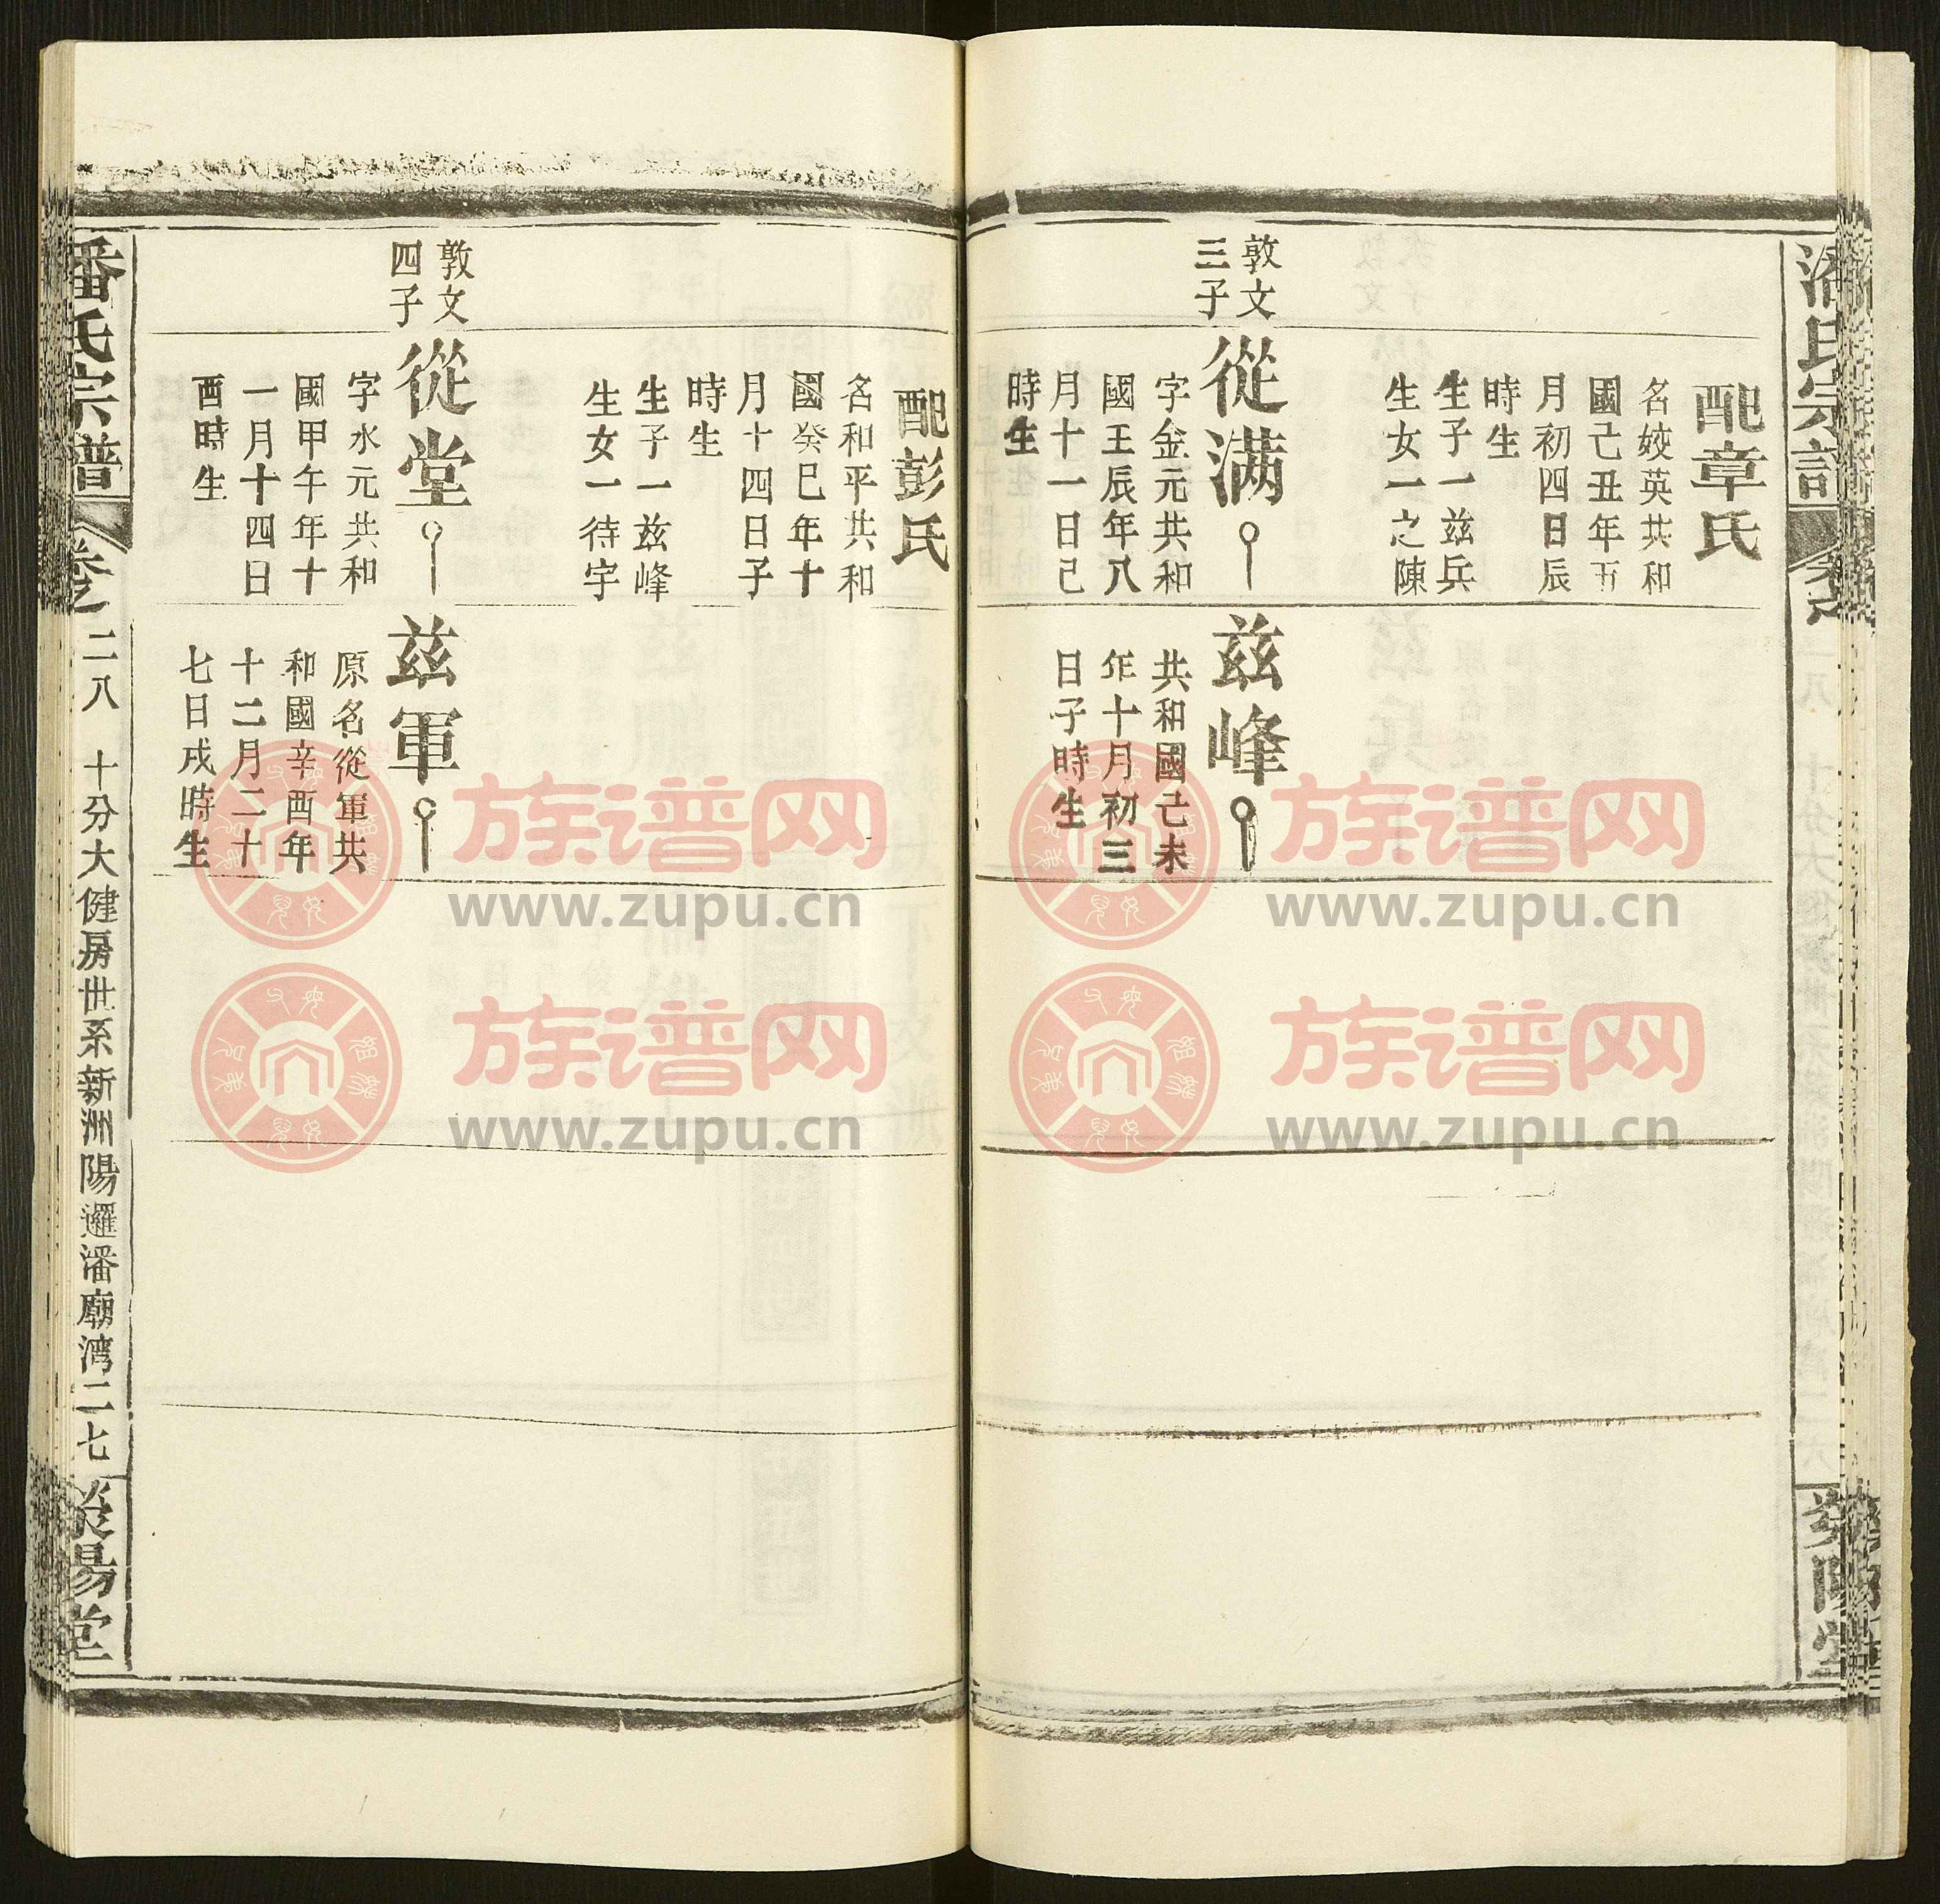 潘氏宗譜
配章氏
名姣英共和
國己丑年五
月初四日辰
時生
生子一兹兵
生女一之陳
敦文
三子
從满
字金元共和
國王辰年八
月十一日己
時生
兹峰
共和國己未
年十月初三
日子時生
配彭氏
名和平共和
國癸巳年十
月十四日子
時生
生子一兹峰
生女一待字
敦文
四子
從堂
字水元共和
國甲午年十
一月十四日
酉時生
兹軍
原名從軍共
和國辛酉年
十二月二十
七日戌時生
潘氏宗譜
卷之二八 十分大健房世系新洲陽邏潘廟湾二七
荥陽堂
族谱网
www.zupu.cn
族谱网
www.zupu.cn
族谱网
www.zupu.cn
族谱网
www.zupu.cn